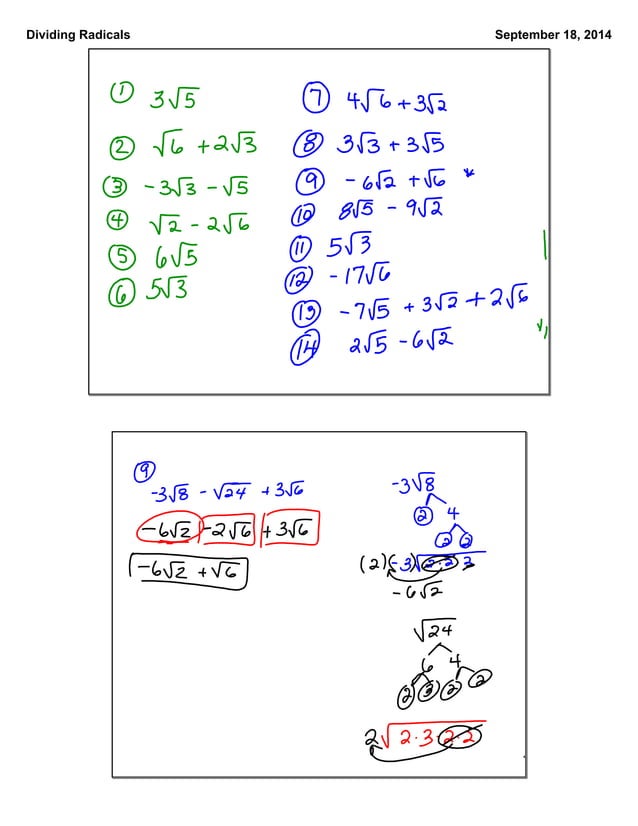 Dividing Radicals
September 18, 2014
① 3√5
② √6 + 2√3
③ -3√3 - √5
④ √2 - 2√6
⑤ 6√5
⑥ 5√3
⑦ 4√6 + 3√2
⑧ 3√3 + 3√5
⑨ -6√2 + √6 *
⑩ 8√5 - 9√2
⑪ 5√3
⑫ -17√6
⑬ -7√5 + 3√2 + 2√6
⑭ 2√5 - 6√2
⑨
-3√8 - √24 + 3√6
-6√2 -2√6 + 3√6
-6√2 + √6
-3√8
2 4
2 2
(2)(-3)√2·2·2
-6√2
√24
6 4
2 3 2 2
2√2·3·2·2